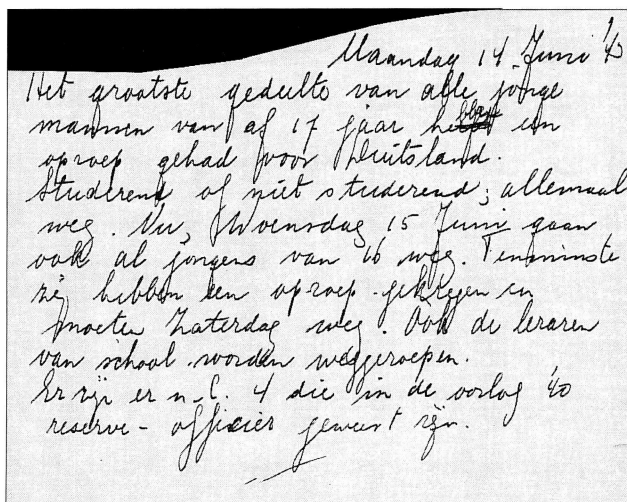 Maandag 14 Juni '43
Het grootste gedeelte van alle jonge
mannen van af 17 jaar hebben een
oproep gehad voor Duitsland.
Studerend of niet studerend; allemaal
weg. Nu, Woensdag 15 Juni gaan
ook al jongens van 16 weg. Tenminste
zij hebben een oproep gekregen en
moeten Zaterdag weg. Ook de leraren
van school worden weggeroepen.
Er zijn er n.l. 4 die in de oorlog '40
reserve-officier geweest zijn.